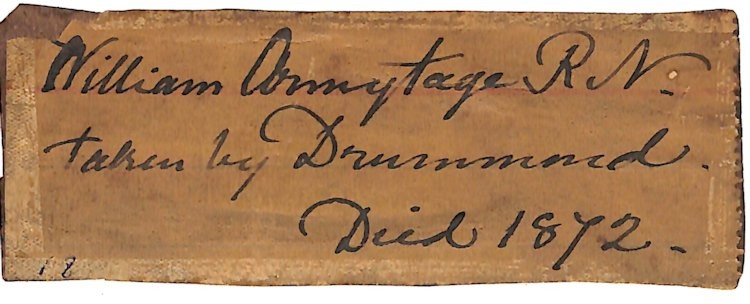 William Armytage R.N.
taken by Drummond.
Died 1872.